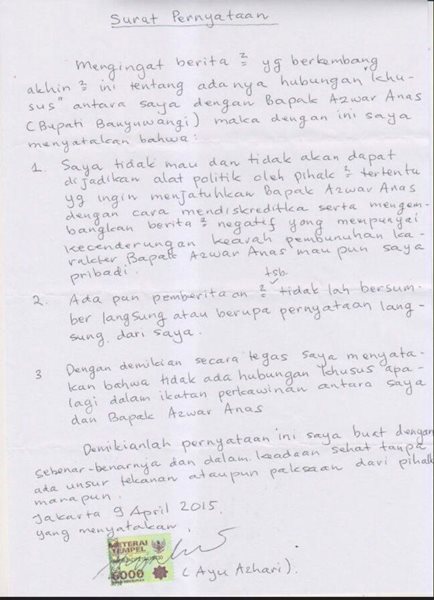 Surat Pernyataan
Mengingat berita 2 yg berkembang
akhir 2 ini tentang adanya hubungan "khu-
sus" antara saya dengan Bapak Azwar Anas
(Bupati Banyuwangi) maka dengan ini saya
menyatakan bahwa:
1 Saya tidak mau dan tidak akan dapat
dijadikan alat politik oleh pihak 2 tertentu
yg ingin menjatuhkan Bapak Azwar Anas
dengan cara mendiskreditka serta mengem-
bangkan berita 2 negatif yang mempunyai
kecenderungan kearah pembunuhan ka-
rakter Bapak Azwar Anas mau pun saya
pribadi.
tsb.
2. Ada pun pemberitaan 2 tidak lah bersum-
ber langsung atau berupa pernyataan lang-
sung dari saya.
3 Dengan demikian secara tegas saya menyata-
kan bahwa tidak ada hubungan khusus apa-
lagi dalam ikatan perkawinan antara saya
dan Bapak Azwar Anas
Demikianlah pernyataan ini saya buat dengan
sebenar-benarnya dan dalam keadaan sehat tanpa
ada unsur tekanan ataupun paksaan dari pihak
manapun.
Jakarta 9 April 2015.
yang menyatakan.
METERAI
TEMPEL
6000
(Ayu Azhari).